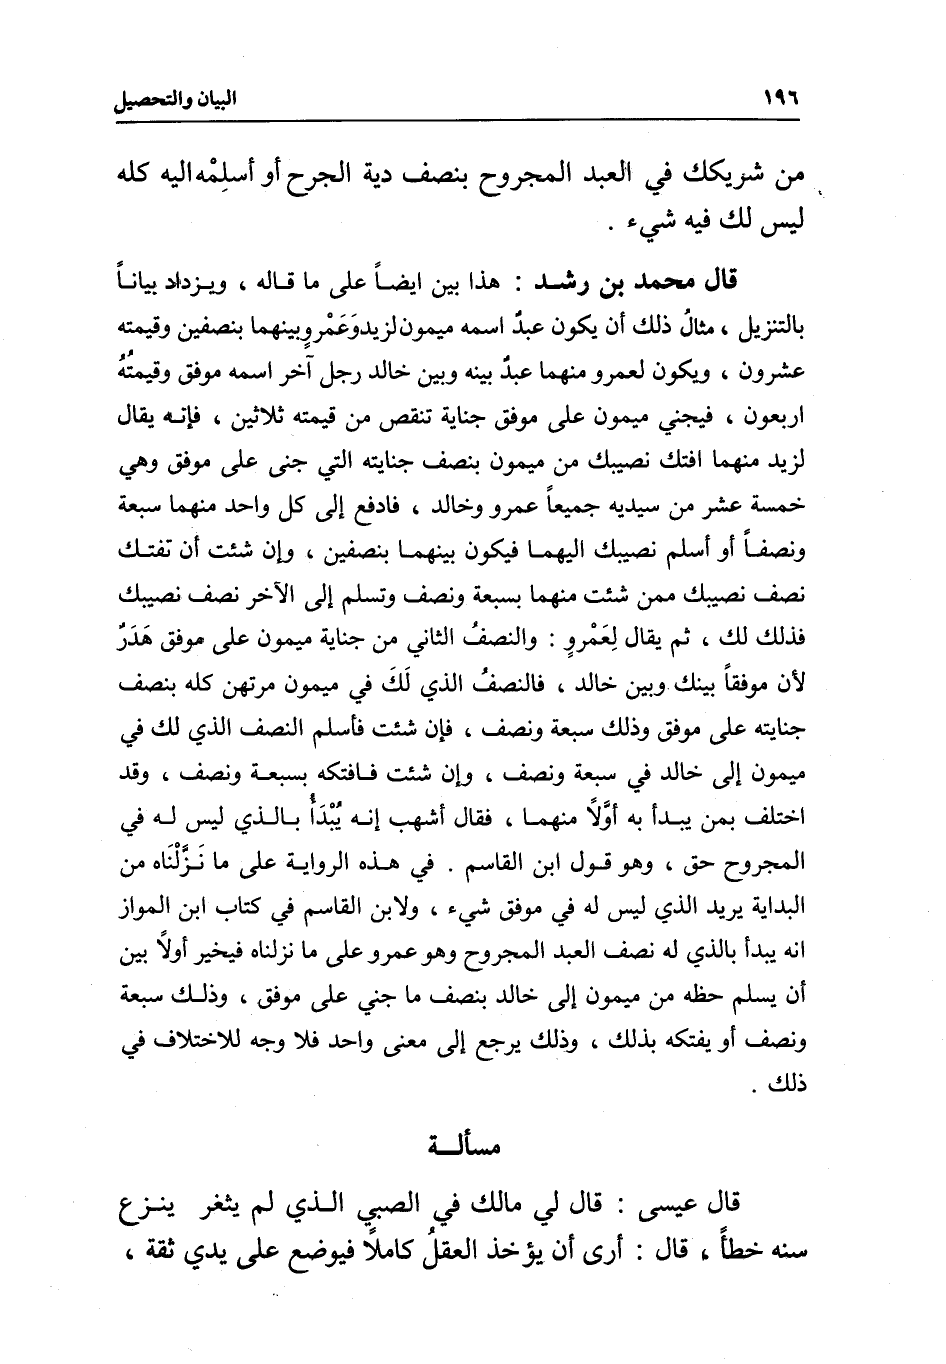 ١٩٦ البيان والتحصيل
من شريكك في العبد المجروح بنصف دية الجرح أو أسلِمْه اليه كله
ليس لك فيه شيء .
قال محمد بن رشد : هذا بين ايضاً على ما قاله ، ويزداد بياناً
بالتنزيل ، مثالُ ذلك أن يكون عبدٌ اسمه ميمون لزيد وَعَمْرٍو بينهما بنصفين وقيمته
عشرون ، ويكون لعمرو منهما عبدٌ بينه وبين خالد رجل آخر اسمه موفق وقيمتُهُ
اربعون ، فيجني ميمون على موفق جناية تنقص من قيمته ثلاثين ، فإنه يقال
لزيد منهما افتك نصيبك من ميمون بنصف جنايته التي جنى على موفق وهي
خمسة عشر من سيديه جميعاً عمرو وخالد ، فادفع إلى كل واحد منهما سبعة
ونصفاً أو أسلم نصيبك اليهما فيكون بينهما بنصفين ، وإن شئت أن تفتك
نصف نصيبك ممن شئت منهما بسبعة ونصف وتسلم إلى الآخر نصف نصيبك
فذلك لك ، ثم يقال لِعَمْرٍو : والنصفُ الثاني من جناية ميمون على موفق هَدَرٌ
لأن موفقاً بينك وبين خالد ، فالنصفُ الذي لَكَ في ميمون مرتهن كله بنصف
جنايته على موفق وذلك سبعة ونصف ، فإن شئت فأسلم النصف الذي لك في
ميمون إلى خالد في سبعة ونصف ، وإن شئت فافتكه بسبعة ونصف ، وقد
اختلف بمن يبدأ به أوَّلاً منهما ، فقال أشهب إنه يُبْدَأُ بالذي ليس له في
المجروح حق ، وهو قول ابن القاسم . في هذه الرواية على ما نَزَّلْنَاه من
البداية يريد الذي ليس له في موفق شيء ، ولابن القاسم في كتاب ابن المواز
انه يبدأ بالذي له نصف العبد المجروح وهو عمرو على ما نزلناه فيخير أولاً بين
أن يسلم حظه من ميمون إلى خالد بنصف ما جني على موفق ، وذلك سبعة
ونصف أو يفتكه بذلك ، وذلك يرجع إلى معنى واحد فلا وجه للاختلاف في
ذلك .
مسألة
قال عيسى : قال لي مالك في الصبي الذي لم يثغر ينزع
سنه خطأً ، قال : أرى أن يؤخذ العقلُ كاملاً فيوضع على يدي ثقة ،